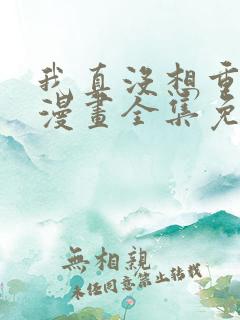 我真没想重
漫畫全集免
無相親
未经同意禁止转载